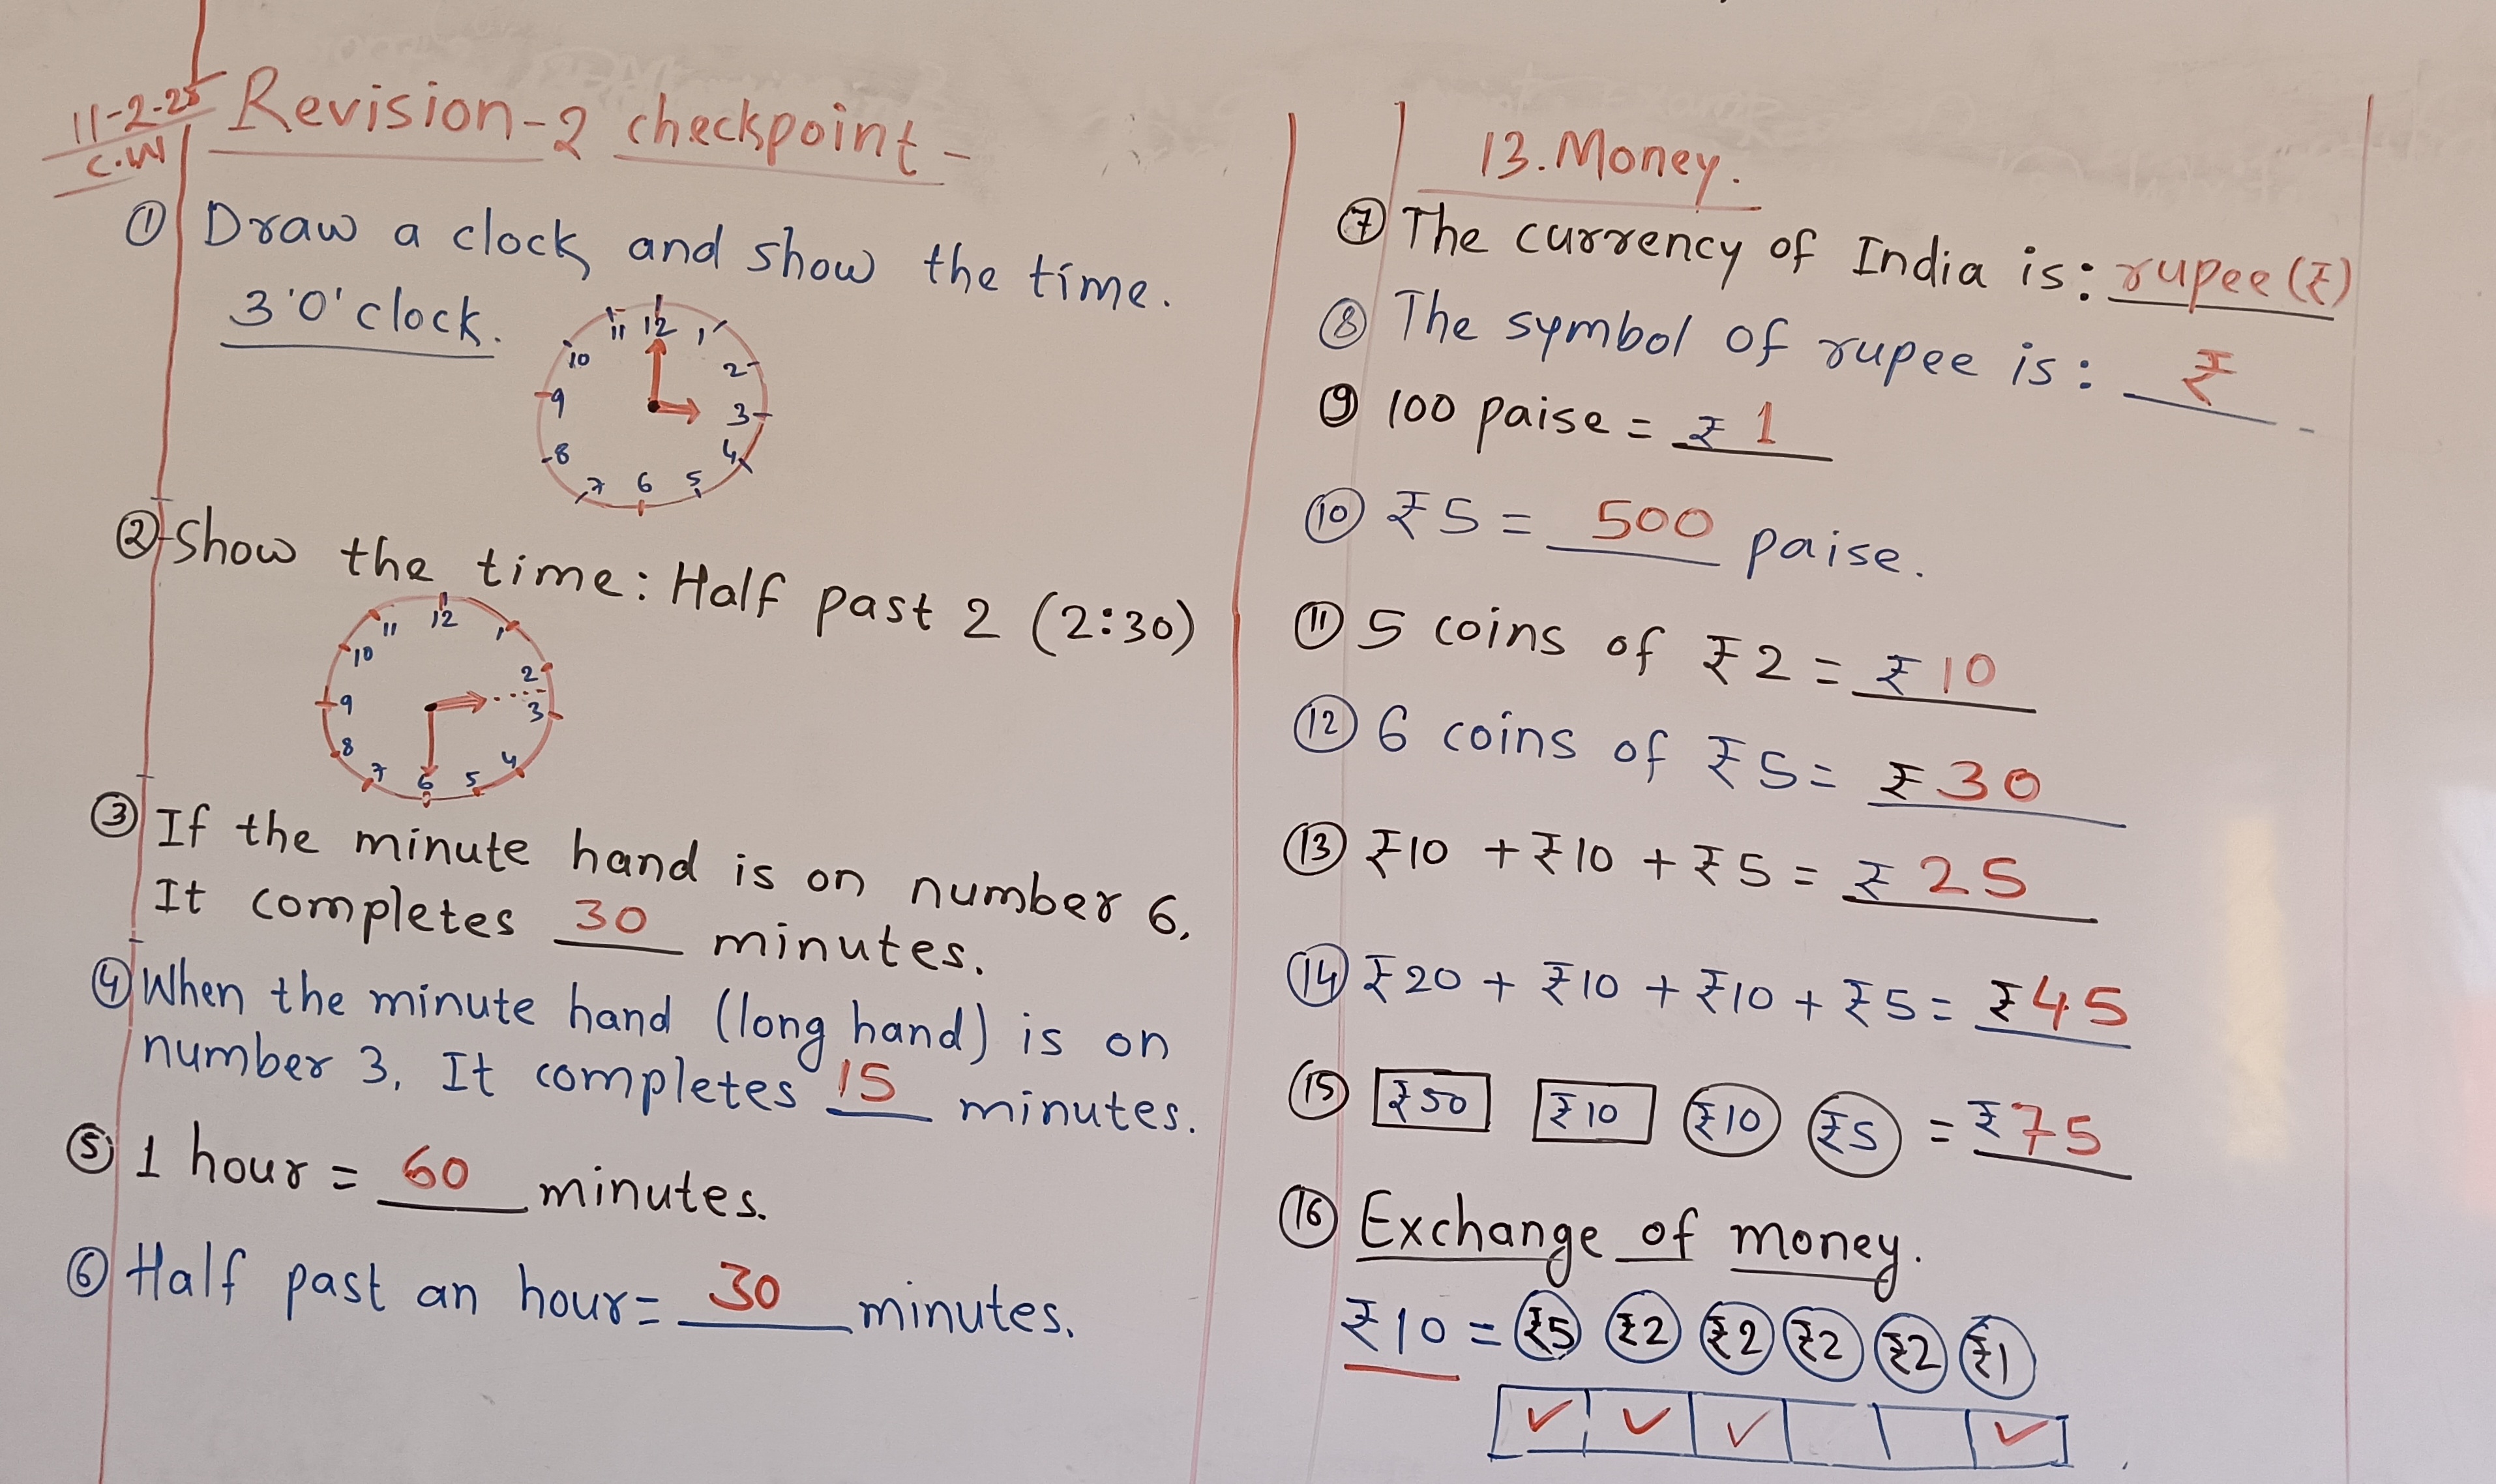 11-2-25
C.W
Revision-2 checkpoint-
① Draw a clock and show the time.
3'0'clock.
11 12 1
10 2
9 3
8 4
7 6 5
② Show the time: Half past 2 (2:30)
11 12 1
10 2
9 3
8 4
7 6 5
③ If the minute hand is on number 6,
It completes 30 minutes.
④ When the minute hand (long hand) is on
number 3, It completes 15 minutes.
⑤ 1 hour = 60 minutes.
⑥ Half past an hour = 30 minutes.
13. Money.
⑦ The currency of India is: rupee (₹)
⑧ The symbol of rupee is: ₹
⑨ 100 paise = ₹ 1
⑩ ₹5 = 500 paise.
⑪ 5 coins of ₹2 = ₹10
⑫ 6 coins of ₹5 = ₹30
⑬ ₹10 + ₹10 + ₹5 = ₹25
⑭ ₹20 + ₹10 + ₹10 + ₹5 = ₹45
⑮ ₹50 ₹10 ₹10 ₹5 = ₹75
⑯ Exchange of money.
₹10 = ₹5 ₹2 ₹2 ₹2 ₹2 ₹1
✓ ✓ ✓ ✓